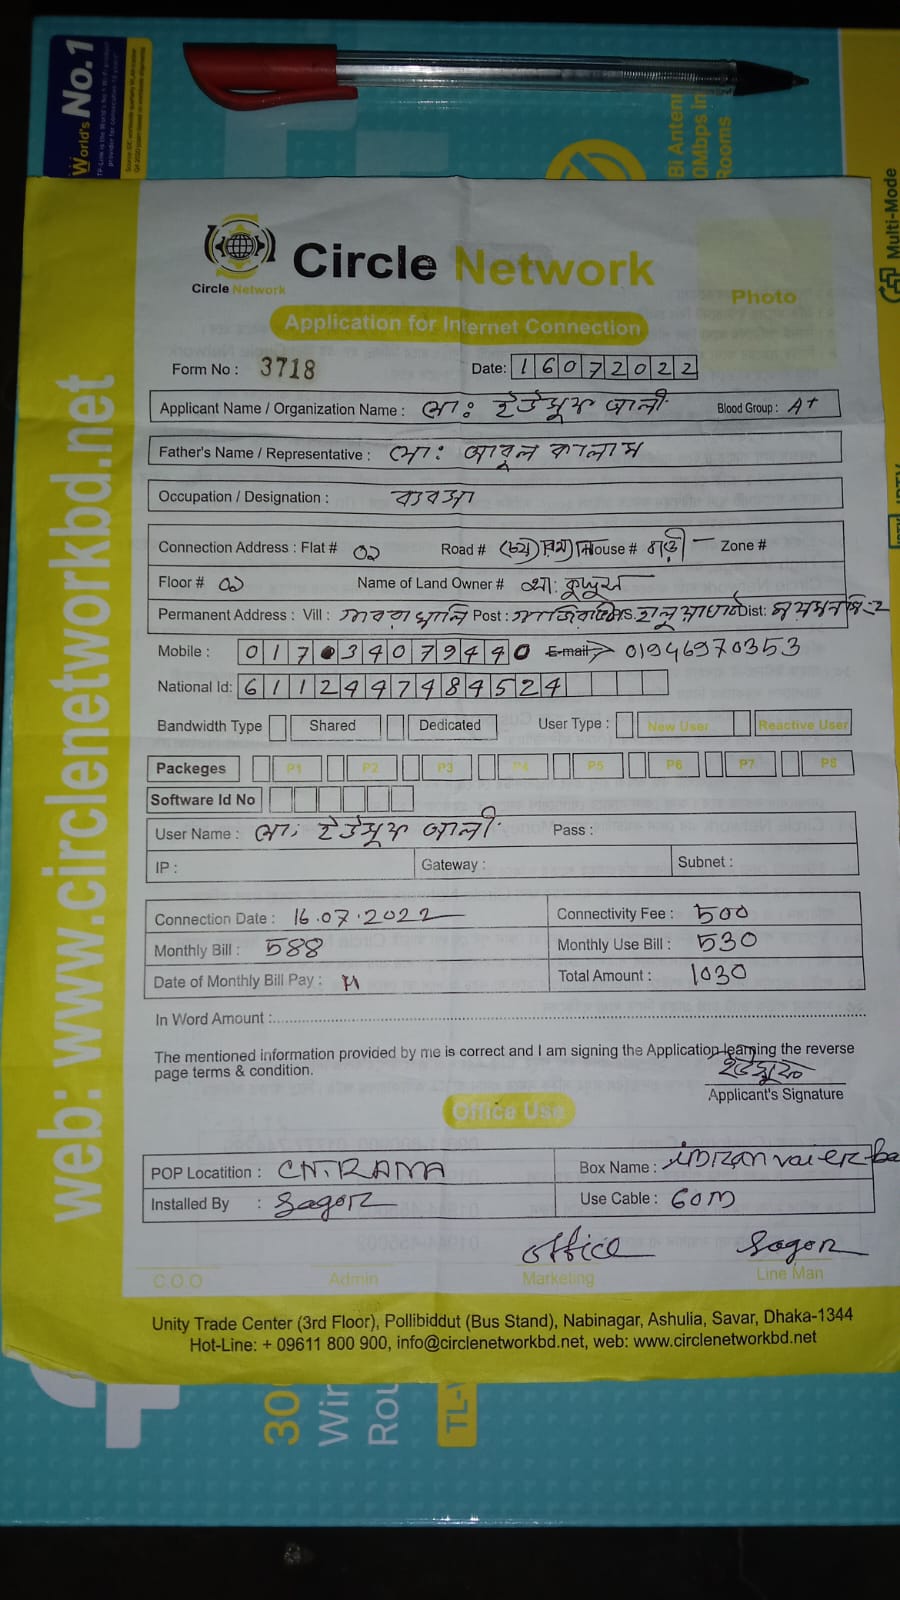 World's No.1
Bi Antenn
0Mbps in
Rooms
Multi-Mode
Circle Network
Circle Network
Photo
Application for Internet Connection
Form No : 3718 Date: 16072022
Applicant Name / Organization Name : মোঃ ইউসুফ আলী Blood Group : A+
Father's Name / Representative : মোঃ আবুল কালাম
Occupation / Designation : ব্যবসা
Connection Address : Flat # ০১ Road # House # বাড়ী Zone #
Floor # ০১ Name of Land Owner # মোঃ কুদ্দুস
Permanent Address : Vill : Post : Dist:
Mobile : 017 34079440 E-mail 01946970353
National Id: 6112447484524
Bandwidth Type Shared Dedicated User Type : New User Reactive User
Packeges P1 P2 P3 P4 P5 P6 P7 P8
Software Id No
User Name : মোঃ ইউসুফ আলী Pass :
IP : Gateway : Subnet :
Connection Date : 16.07.2022 Connectivity Fee : 500
Monthly Bill : 588 Monthly Use Bill : 530
Date of Monthly Bill Pay : Total Amount : 1030
In Word Amount :
The mentioned information provided by me is correct and I am signing the Application learning the reverse
page terms & condition.
ইউসুফ
Applicant's Signature
Office Use
POP Locatition : Box Name :
Installed By : Sagor Use Cable : 60M
office Sagor
C.O.O Admin Marketing Line Man
Unity Trade Center (3rd Floor), Pollibiddut (Bus Stand), Nabinagar, Ashulia, Savar, Dhaka-1344
Hot-Line: + 09611 800 900, info@circlenetworkbd.net, web: www.circlenetworkbd.net
web: www.circlenetworkbd.net
300
Wir
Rou
TL-